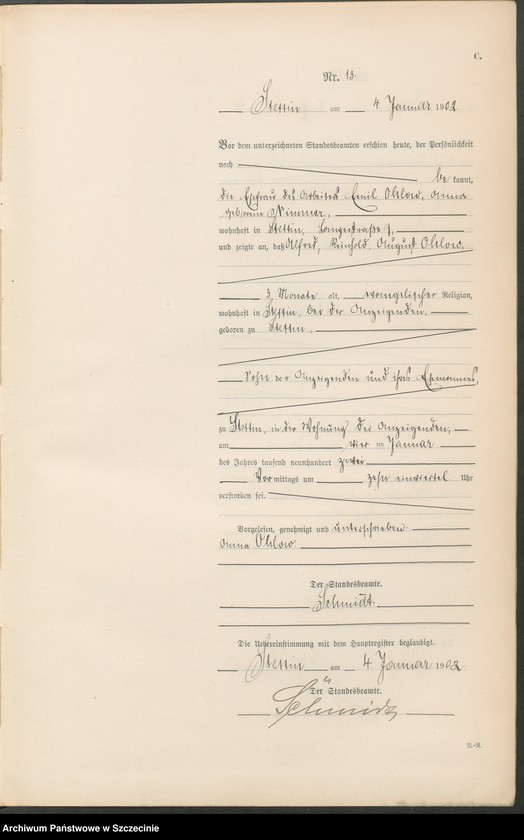 C.
Nr. 13.
Stettin am 4 Januar 1902.
Vor dem unterzeichneten Standesbeamten erschien heute, der Persönlichkeit
nach
be kannt,
die Ehefrau des Arbeiters Emil Ohlow, Anna
geborene Wimmer,
wohnhaft in Stettin, Langestraße
und zeigte an, daß Alfred, Reinhold, August Ohlow,
3 Monate alt, evangelischer Religion,
wohnhaft in Stettin, bei der Anzeigenden.
geboren zu Stettin,
Sohn der Anzeigenden und ihres Ehemannes,
zu Stettin, in der Wohnung der Anzeigenden,
am vier ten Januar
des Jahres tausend neunhundert zwei
Vor mittags um zehn einviertel Uhr
verstorben sei.
Vorgelesen, genehmigt und unterschrieben.
Anna Ohlow
Der Standesbeamte.
Schmidt.
Die Uebereinstimmung mit dem Hauptregister beglaubigt.
Stettin am 4 Januar 1902
Der Standesbeamte.
Schmidt
Archiwum Państwowe w Szczecinie